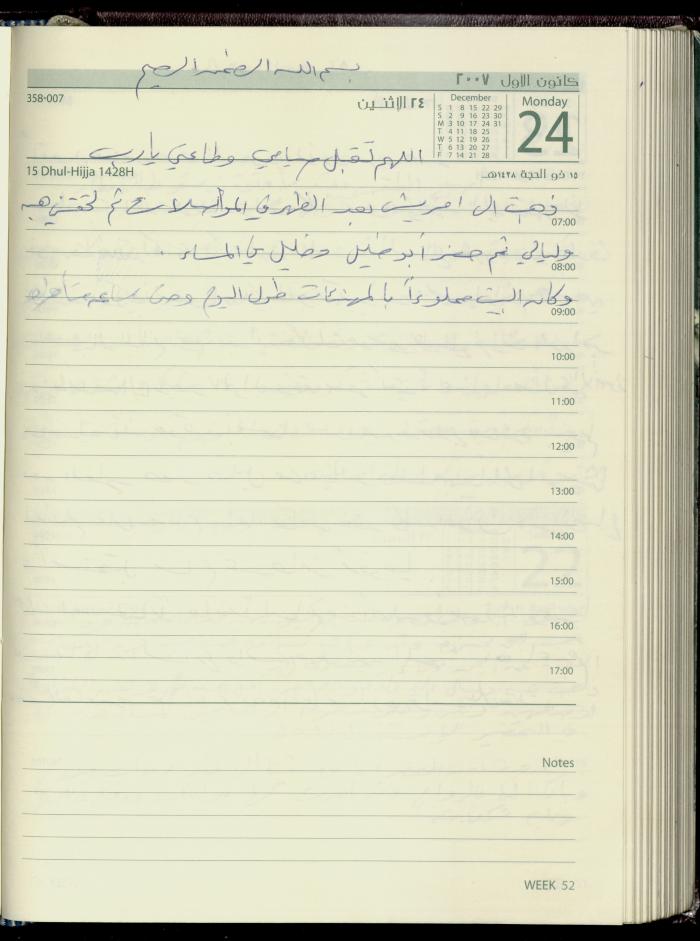 بسم الله الرحمن الرحيم
كانون الاول ٢٠٠٧
358-007
٢٤ الاثنين
December
S 1 8 15 22 29
S 2 9 16 23 30
M 3 10 17 24 31
T 4 11 18 25
W 5 12 19 26
T 6 13 20 27
F 7 14 21 28
Monday
24
اللهم تقبل صيامي وطاعتي يا رب
15 Dhul-Hijja 1428H
١٥ ذو الحجة ١٤٢٨هـ
ذهبت الى بعد الظهر في المواصلات ثم لحقتني هبه
07:00
وليالي ثم حضر أبو خليل وخليل في المساء .
08:00
وكان البيت مملوءاً بالمهنئات طول اليوم وحتى ساعة متأخرة
09:00
10:00
11:00
12:00
13:00
14:00
15:00
16:00
17:00
Notes
WEEK 52